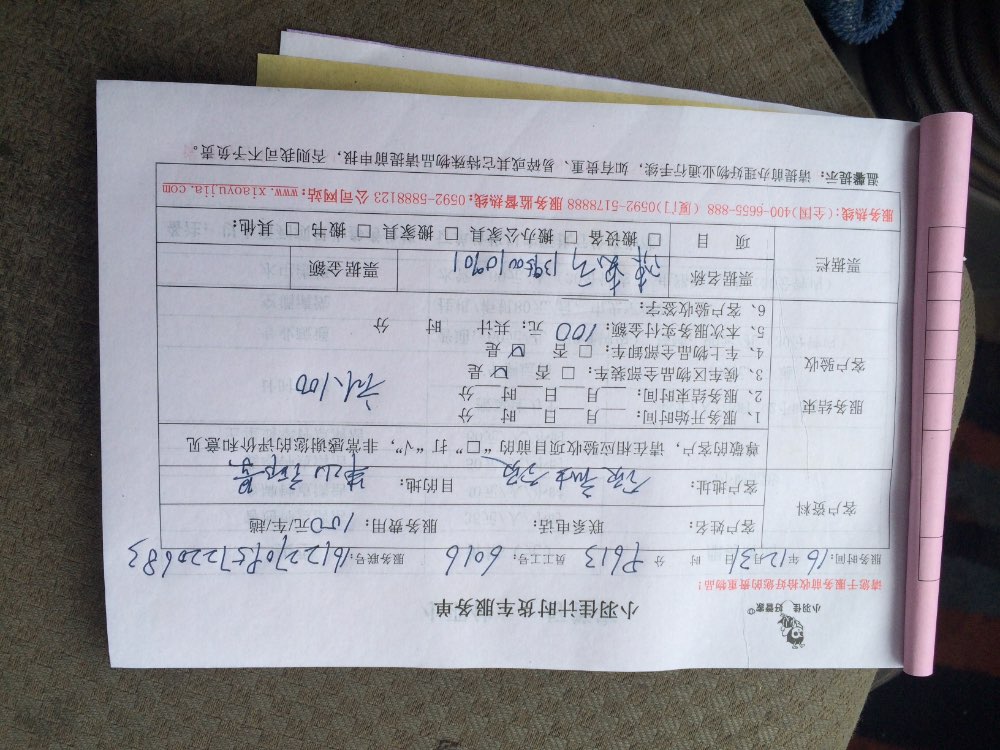 小羽佳 好管家
小羽佳计时货车服务单
请您于服务前收拾好您的贵重物品!
服务时间: 16 年 12 月 31 日 时 分 员工工号: 6016 服务联号:
客户资料
客户姓名: 联系电话: 服务费用: 100 元/车/趟
客户地址: 目的地:
尊敬的客户, 请在相应验收项目前的 "□" 打 "√", 非常感谢您的评价和意见
服务结束
客户验收
1、服务开始时间: 月 日 时 分
2、服务结束时间: 月 日 时 分
3、候车区物品全部装车: □ 否 ☑ 是
4、车上物品全部卸车: □ 否 ☑ 是
5、本次服务实付金额: 100 元; 共计 时 分
6、客户验收签字:
票据栏
票据名称 票据金额
项 目 □ 搬设备 □ 搬办公家具 □ 搬家具 □ 搬书 □ 其他:
服务热线:(全国)400-6655-888 (厦门)0592-5178888 服务监督热线:0592-5888123 公司网站: www.xiaoyujia.com
温馨提示: 请提前办理好物业通行手续, 如有贵重、易碎或其它特殊物品请提前申报, 否则我司不予负责。